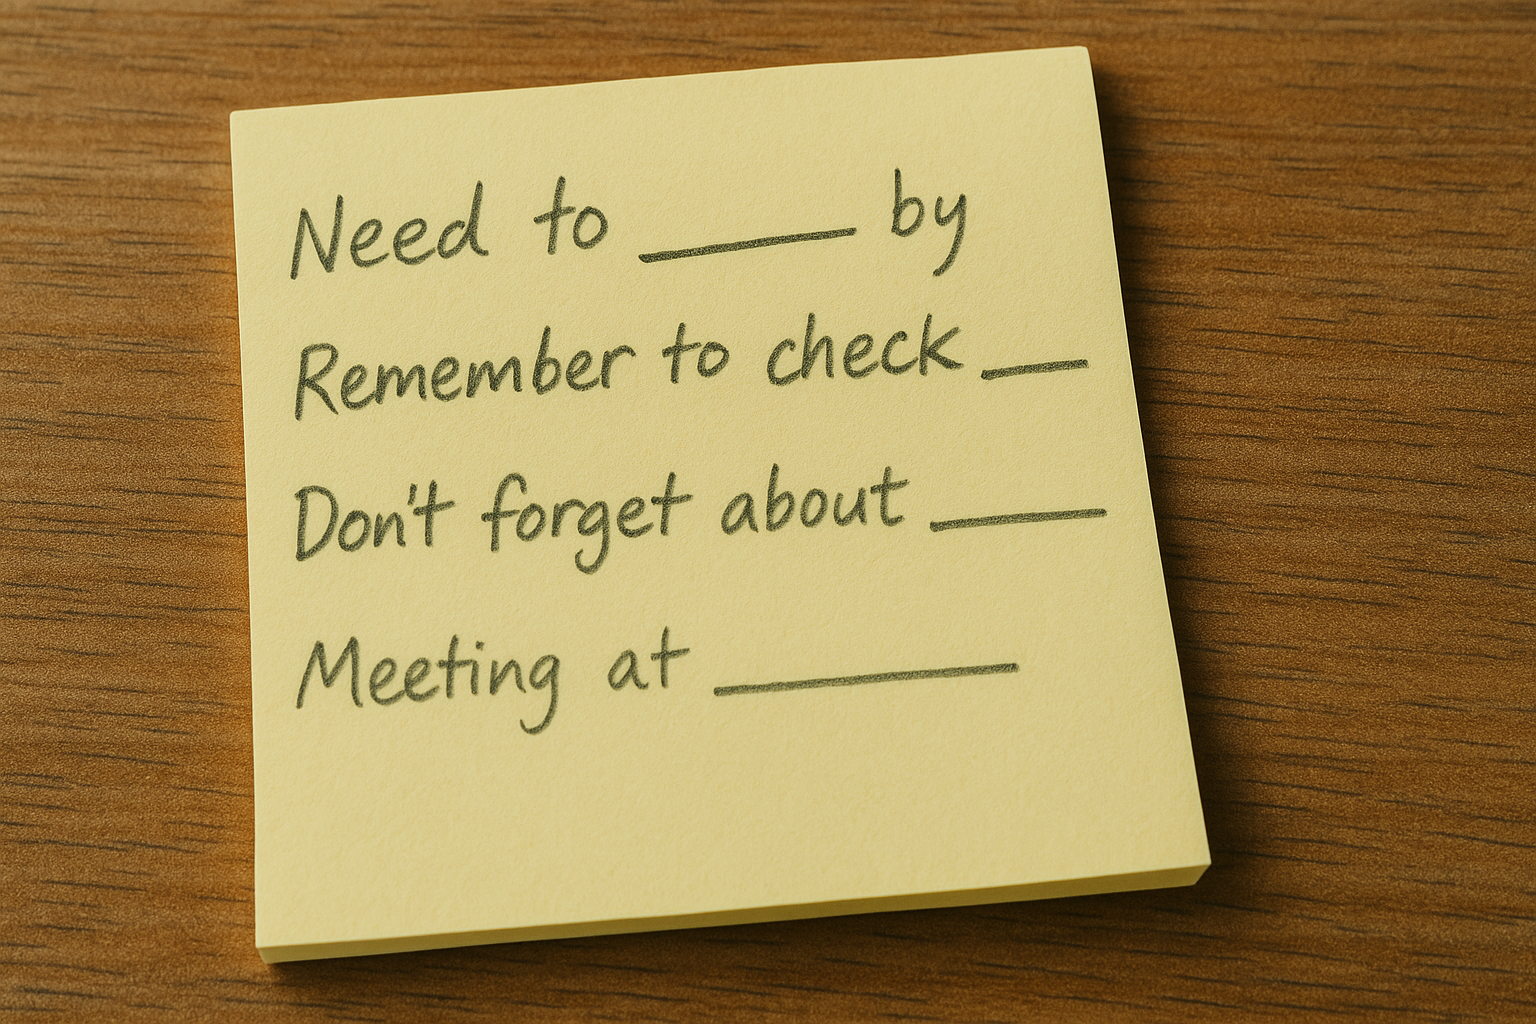 Need to _____ by
Remember to check ___
Don't forget about _____
Meeting at ________